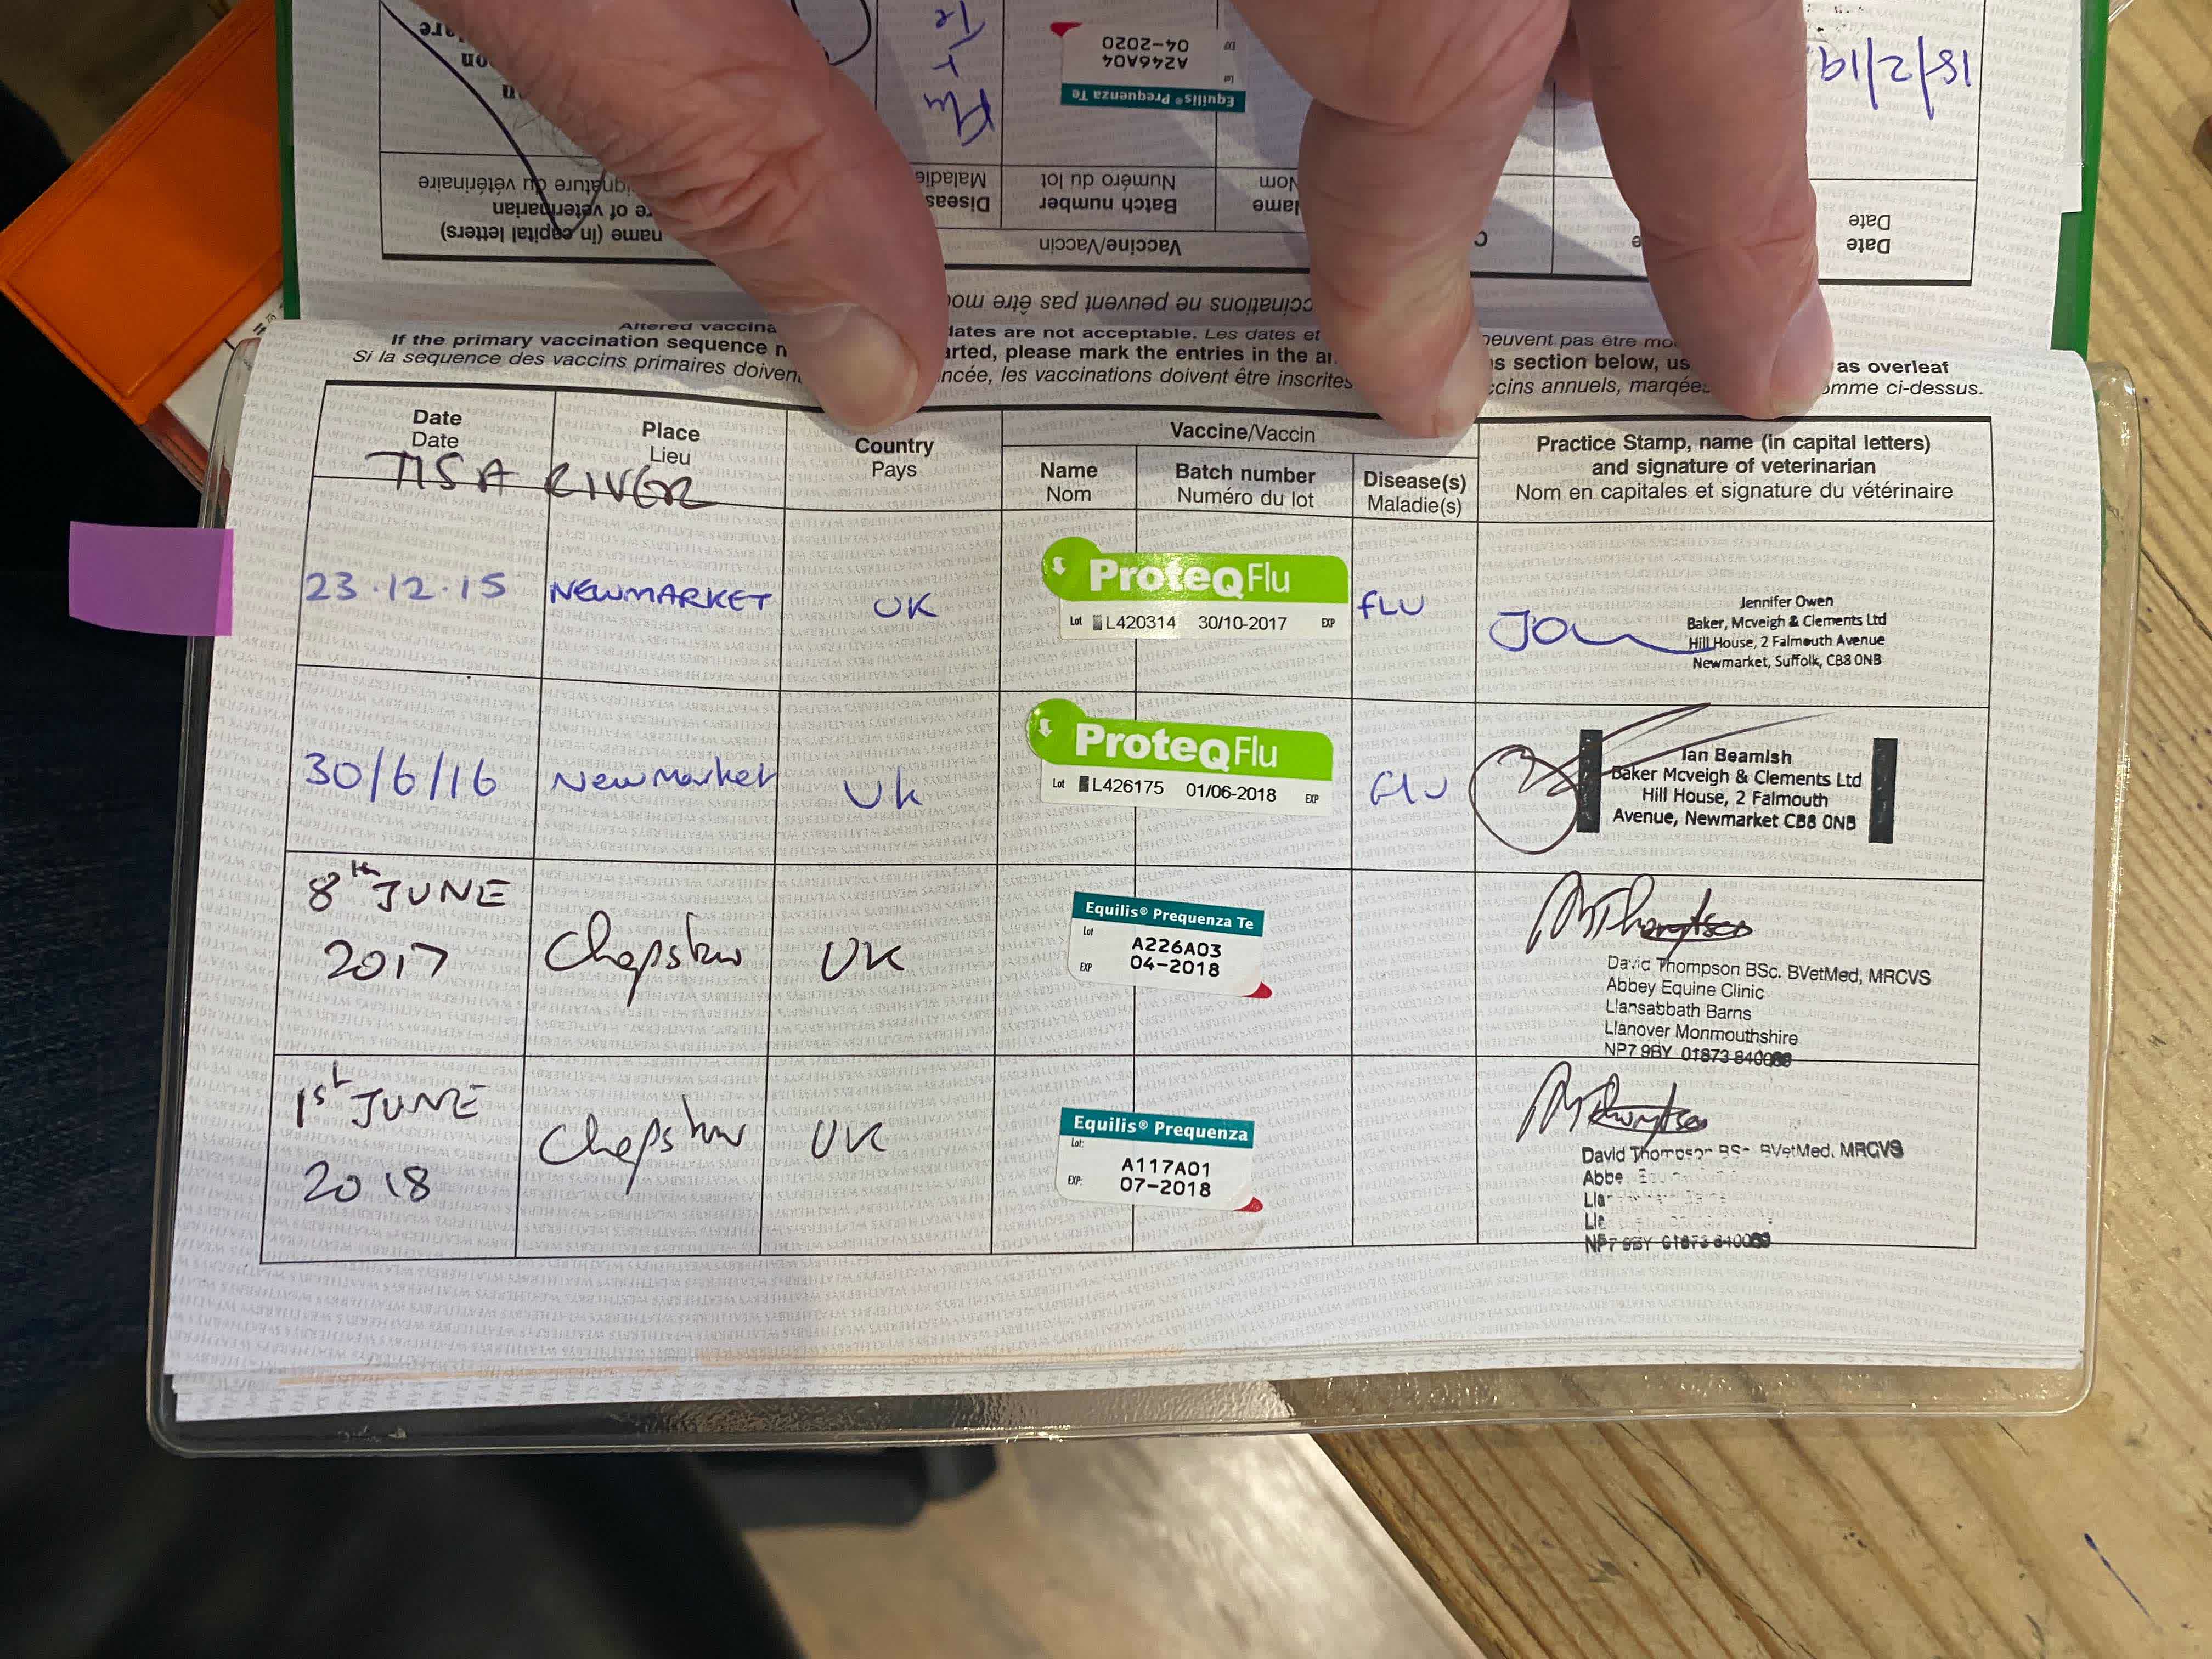 18/2/19
Flu
+
Te
Equilis® Prequenza Te
Lot
A246A04
04-2020
Date
Date
Vaccine/Vaccin
Batch number
Numéro du lot
name (in capital letters)
re of veterinarian
signature du vétérinaire
ne peuvent pas être
If the primary vaccination sequence
dates are not acceptable. Les dates et
peuvent pas être
please mark the entries in the
section below,
as overleaf
Si la séquence des vaccins primaires
les vaccinations doivent être inscrites
annuels,
comme ci-dessus.
Date
Date
Place
Lieu
Country
Pays
Vaccine/Vaccin
Name
Nom
Batch number
Numéro du lot
Disease(s)
Maladie(s)
Practice Stamp, name (in capital letters)
and signature of veterinarian
Nom en capitales et signature du vétérinaire
TISA RIVER
23.12.15
NEWMARKET
UK
ProteqFlu
Lot L420314 30/10-2017 EXP
FLU
Jennifer Owen
Baker, Mcveigh & Clements Ltd
Hill House, 2 Falmouth Avenue
Newmarket, Suffolk, CB8 0NB
30/6/16
Newmarket
Uk
ProteqFlu
Lot L426175 01/06-2018 EXP
FLU
Ian Beamish
Baker Mcveigh & Clements Ltd
Hill House, 2 Falmouth
Avenue, Newmarket CB8 0NB
8th JUNE
2017
Chepstow
UK
Equilis® Prequenza Te
Lot
A226A03
EXP 04-2018
David Thompson BSc. BVetMed, MRCVS
Abbey Equine Clinic
Llansabbath Barns
Llanover Monmouthshire
NP7 9BY 01873 840
1st JUNE
2018
Chepstow
UK
Equilis® Prequenza
Lot:
A117A01
EXP: 07-2018
David Thompson BVetMed, MRCVS
NP7 9BY 01873